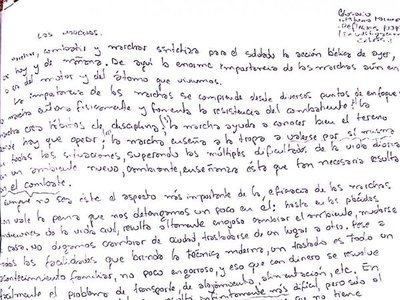 Las marchas.
marchar, combatir y marchar sintetiza para el soldado la acción bélica de ayer,
de hoy y de mañana. De aquí la enorme importancia de las marchas aún en
del motor y del átomo que vivimos.
La importancia de las marchas se comprende desde diversos puntos de enfoque:
marcha entrena físicamente y fomenta la resistencia del combatiente; la
marcha crea hábitos de disciplina; la marcha ayuda a conocer bien el terreno
hay que operar; la marcha enseña a la tropa a valerse por sí misma
todas las situaciones, superando las múltiples dificultades de la vida diaria
un ambiente nuevo, cambiante, enseñanza ésta que tan necesaria resulta
el combate.
Aunque no sea éste el aspecto más importante de la eficacia de las marchas,
vale la pena que nos detengamos un poco en él: hasta en las plácidas
de la vida civil, resulta altamente engoroso cambiar el ambiente, mudarse
casa. No digamos cambiar de ciudad, trasladarse de un lugar a otro. Pese a
las facilidades que brinda la técnica moderna, un traslado es todo un
acontecimiento familiar, no poco engorroso, y eso que con dinero se resuelve
fácilmente el problema de transporte, de alojamiento, alimentación, etc. En
resulta infinitamente más difícil, pero sólo al